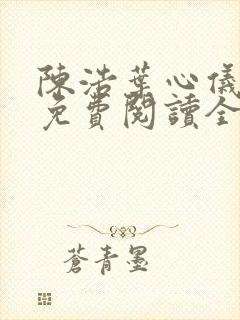 陳浩葉心儀
免費閱讀全
蒼青墨